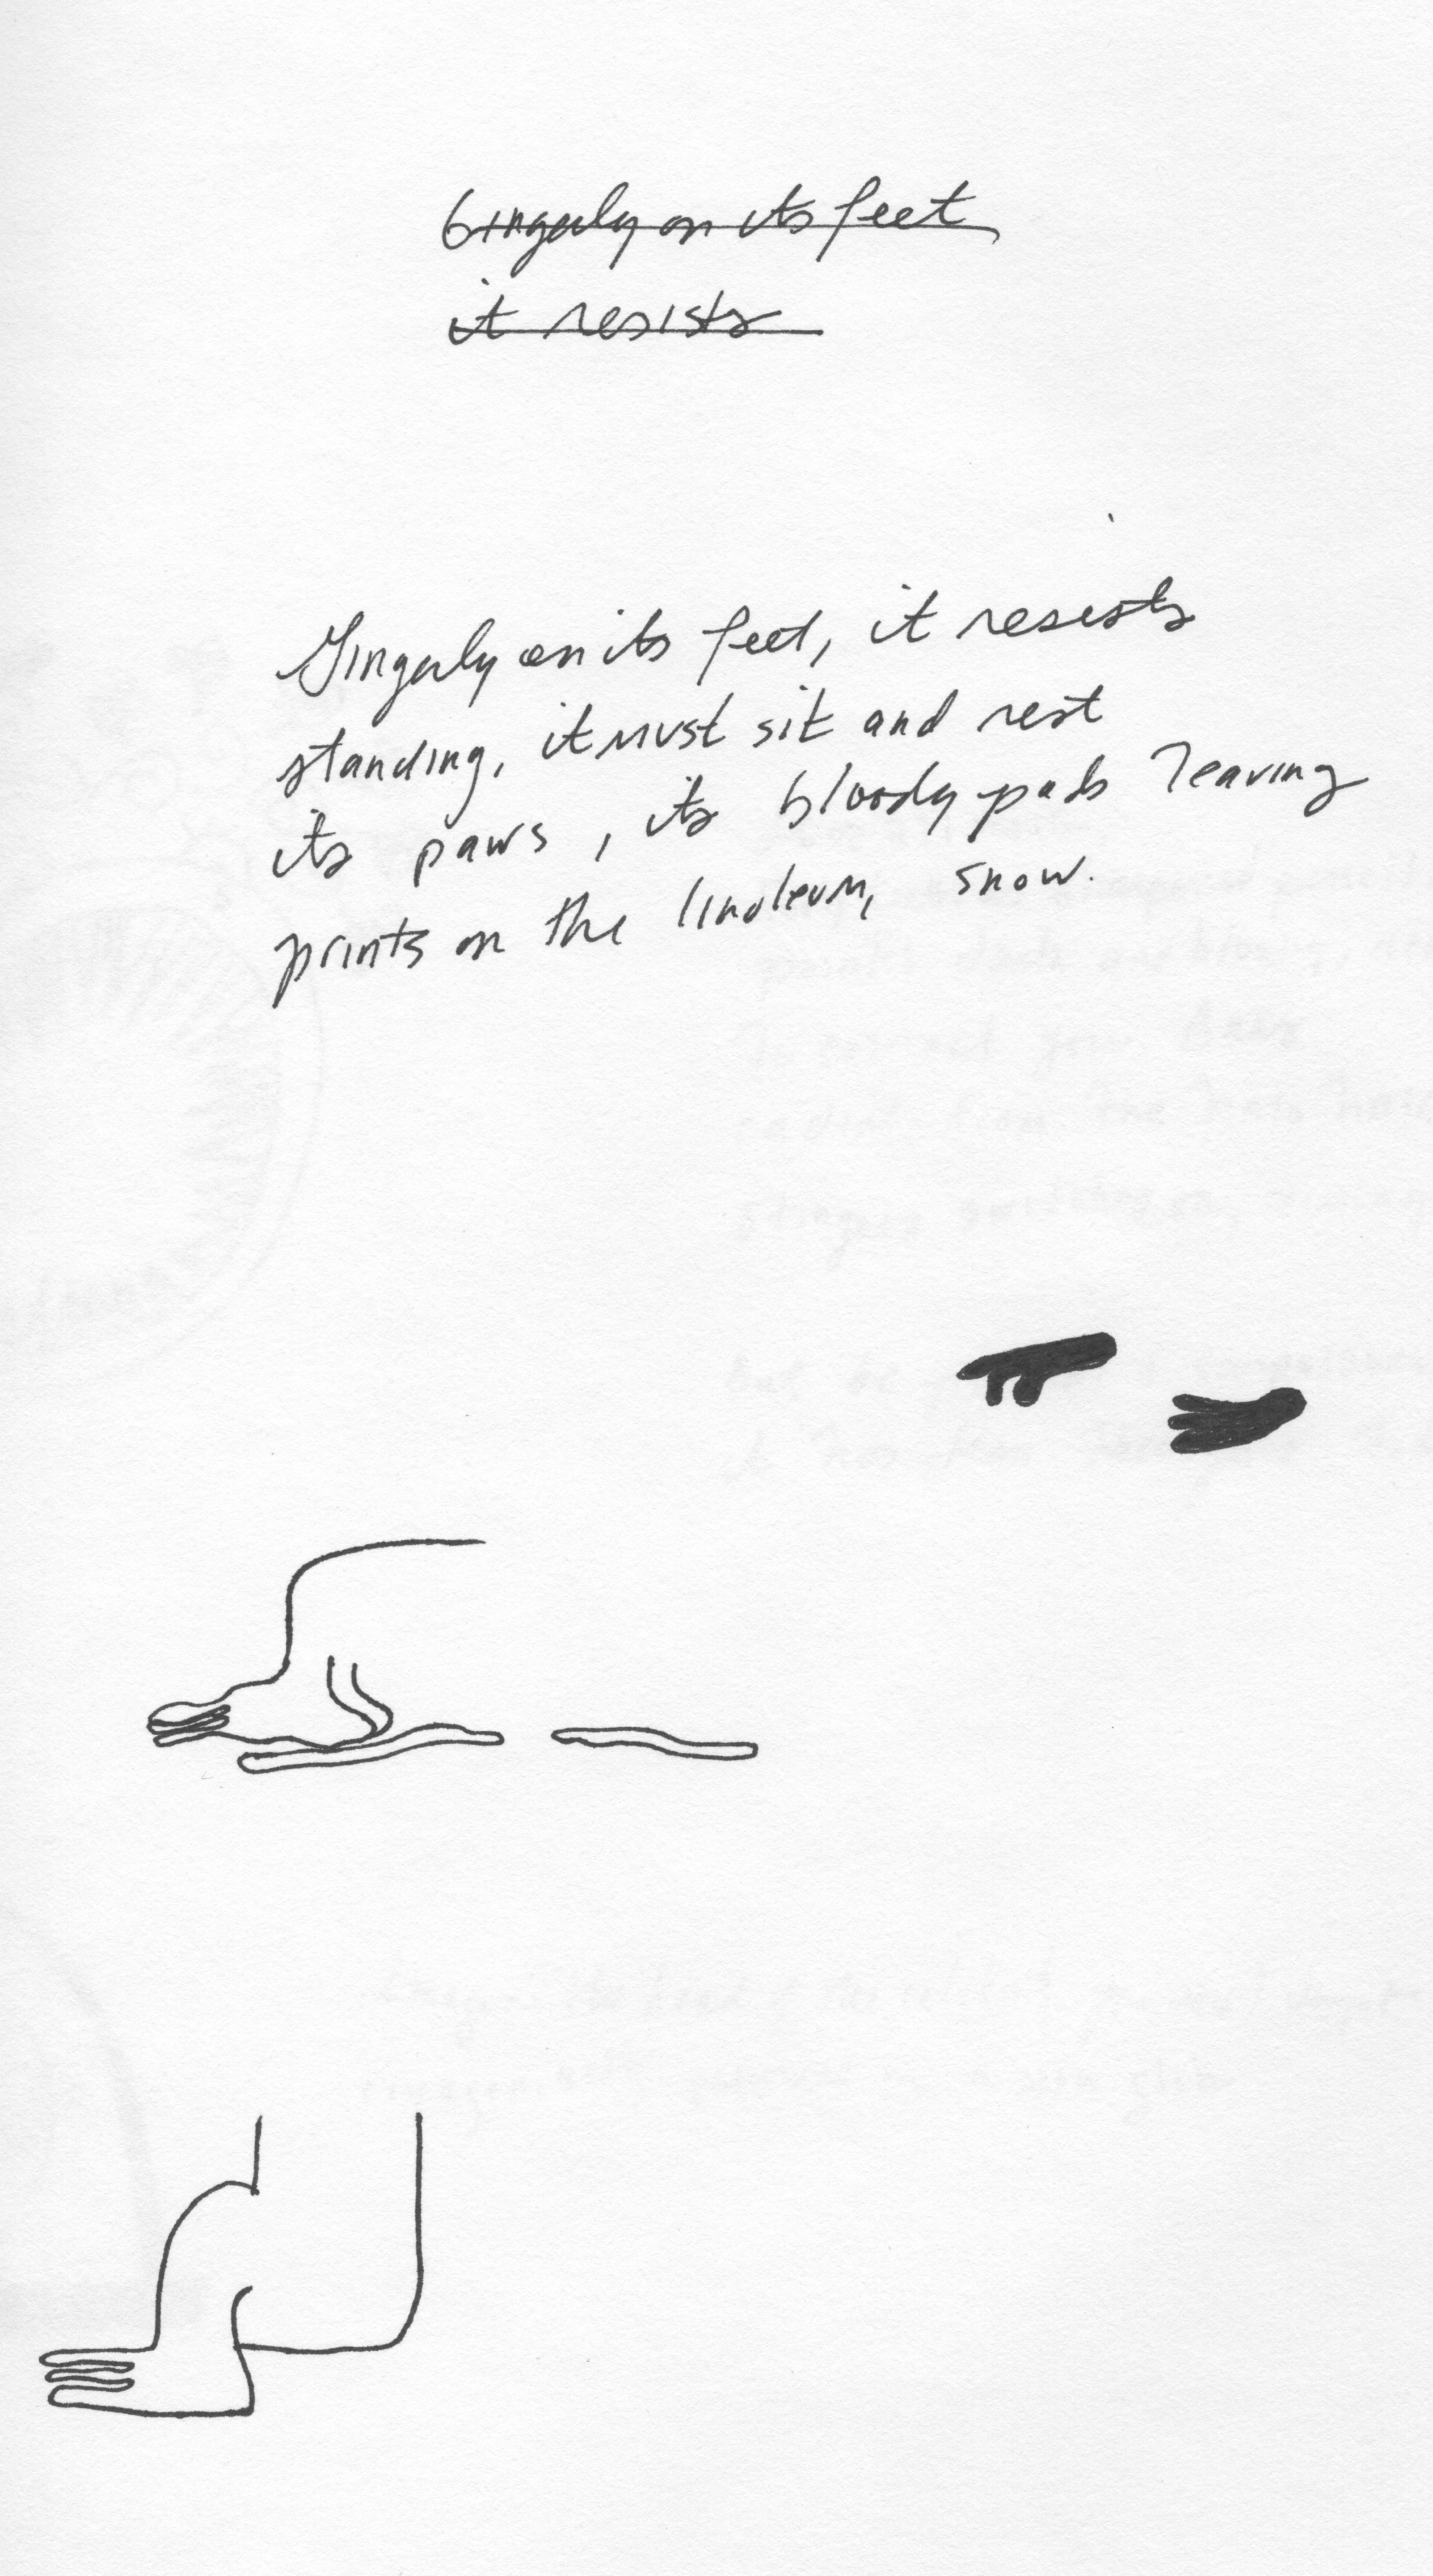 Gingerly on its feet
it resists
Gingerly on its feet, it resists
standing, it must sit and rest
its paws, its bloody pads leaving
prints on the linoleum, snow.